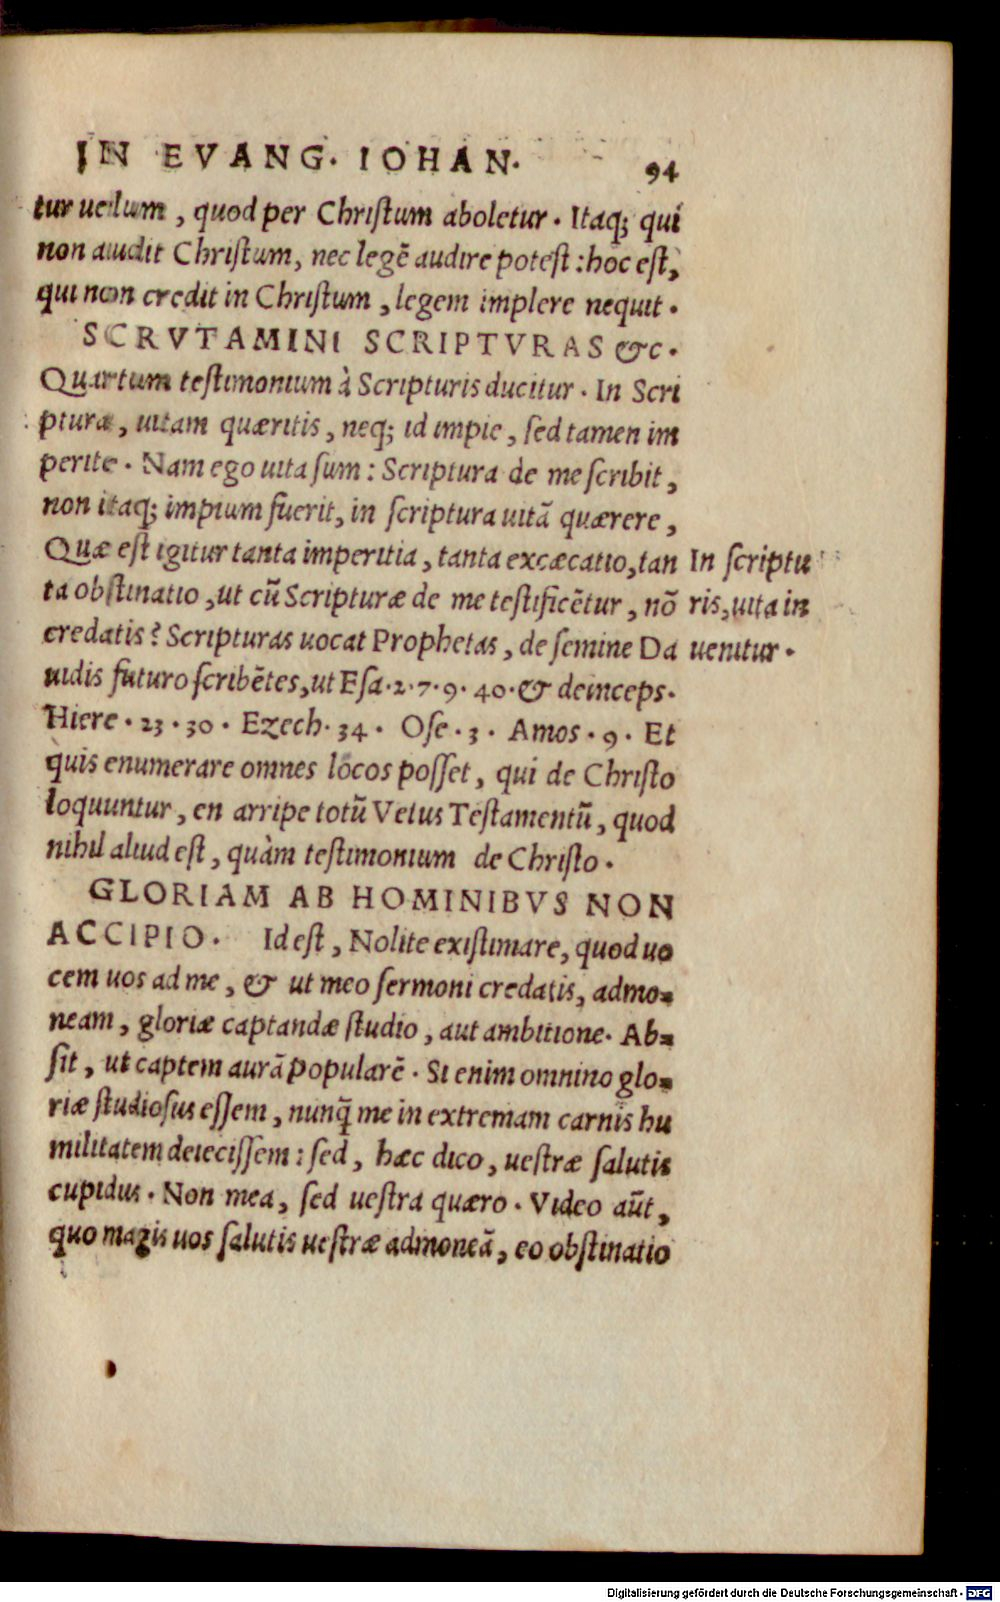 IN EVANG. IOHAN. 94
tur uelum, quod per Christum aboletur. Itaq; qui
non audit Christum, nec legē audire potest: hoc est,
qui non credit in Christum, legem implere nequit.
SCRVTAMINI SCRIPTVRAS &c.
Quartum testimonium à Scripturis ducitur. In Scri
ptura, uitam quæritis, neq; id impie, sed tamen im
perite. Nam ego uita sum: Scriptura de me scribit,
non itaq; impium fuerit, in scriptura uitā quærere,
Quæ est igitur tanta imperitia, tanta excæcatio, tan
ta obstinatio, ut cū Scripturæ de me testificētur, nō
credatis? Scripturas uocat Prophetas, de semine Da
uidis futuro scribētes, ut Esa. 2. 7. 9. 40. & deinceps.
Hiere. 23. 30. Ezech. 34. Ose. 3. Amos. 9. Et
quis enumerare omnes locos posset, qui de Christo
loquuntur, en arripe totū Vetus Testamentū, quod
nihil aliud est, quàm testimonium de Christo.
GLORIAM AB HOMINIBVS NON
ACCIPIO. Id est, Nolite existimare, quod uo
cem uos ad me, & ut meo sermoni credatis, admo-
neam, gloriæ captandæ studio, aut ambitione. Ab-
sit, ut captem aurā popularē. Si enim omnino glo-
riæ studiosus essem, nunq̄ me in extremam carnis hu
militatem deiecissem: sed, hæc dico, uestræ salutis
cupidus. Non mea, sed uestra quæro. Video aūt,
quo magis uos salutis uestræ admoneā, eo obstinatio
In scriptu
ris, uita in
uenitur.
Digitalisierung gefördert durch die Deutsche Forschungsgemeinschaft - DFG